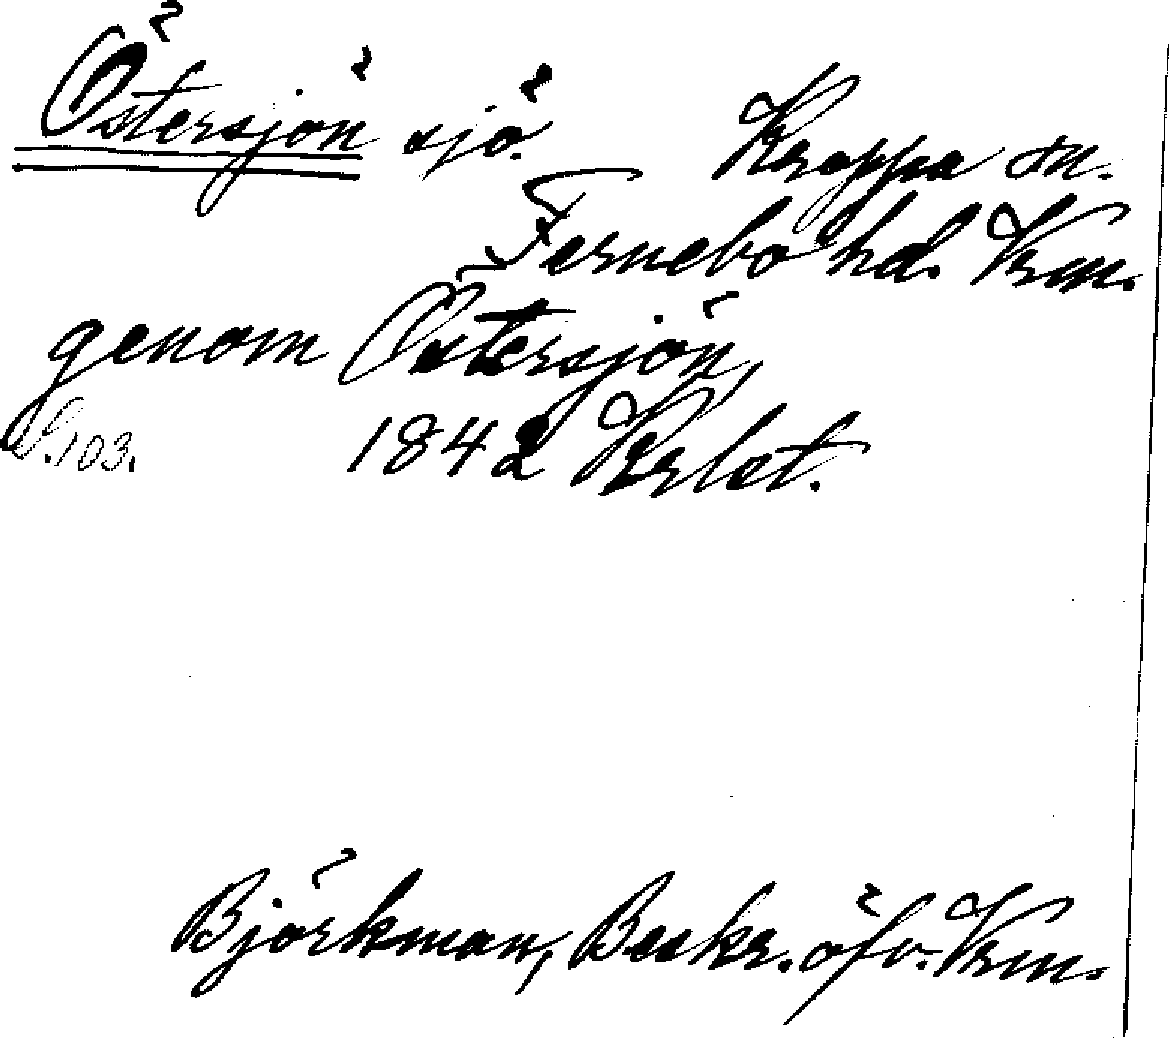 Östersjön sjö. Kroppa sn.
Fernebo hd. Vrm.
genom Östersjön,
S. 103. 1842 Krlst.
Björkman, Beskr. öfv. Vrm.